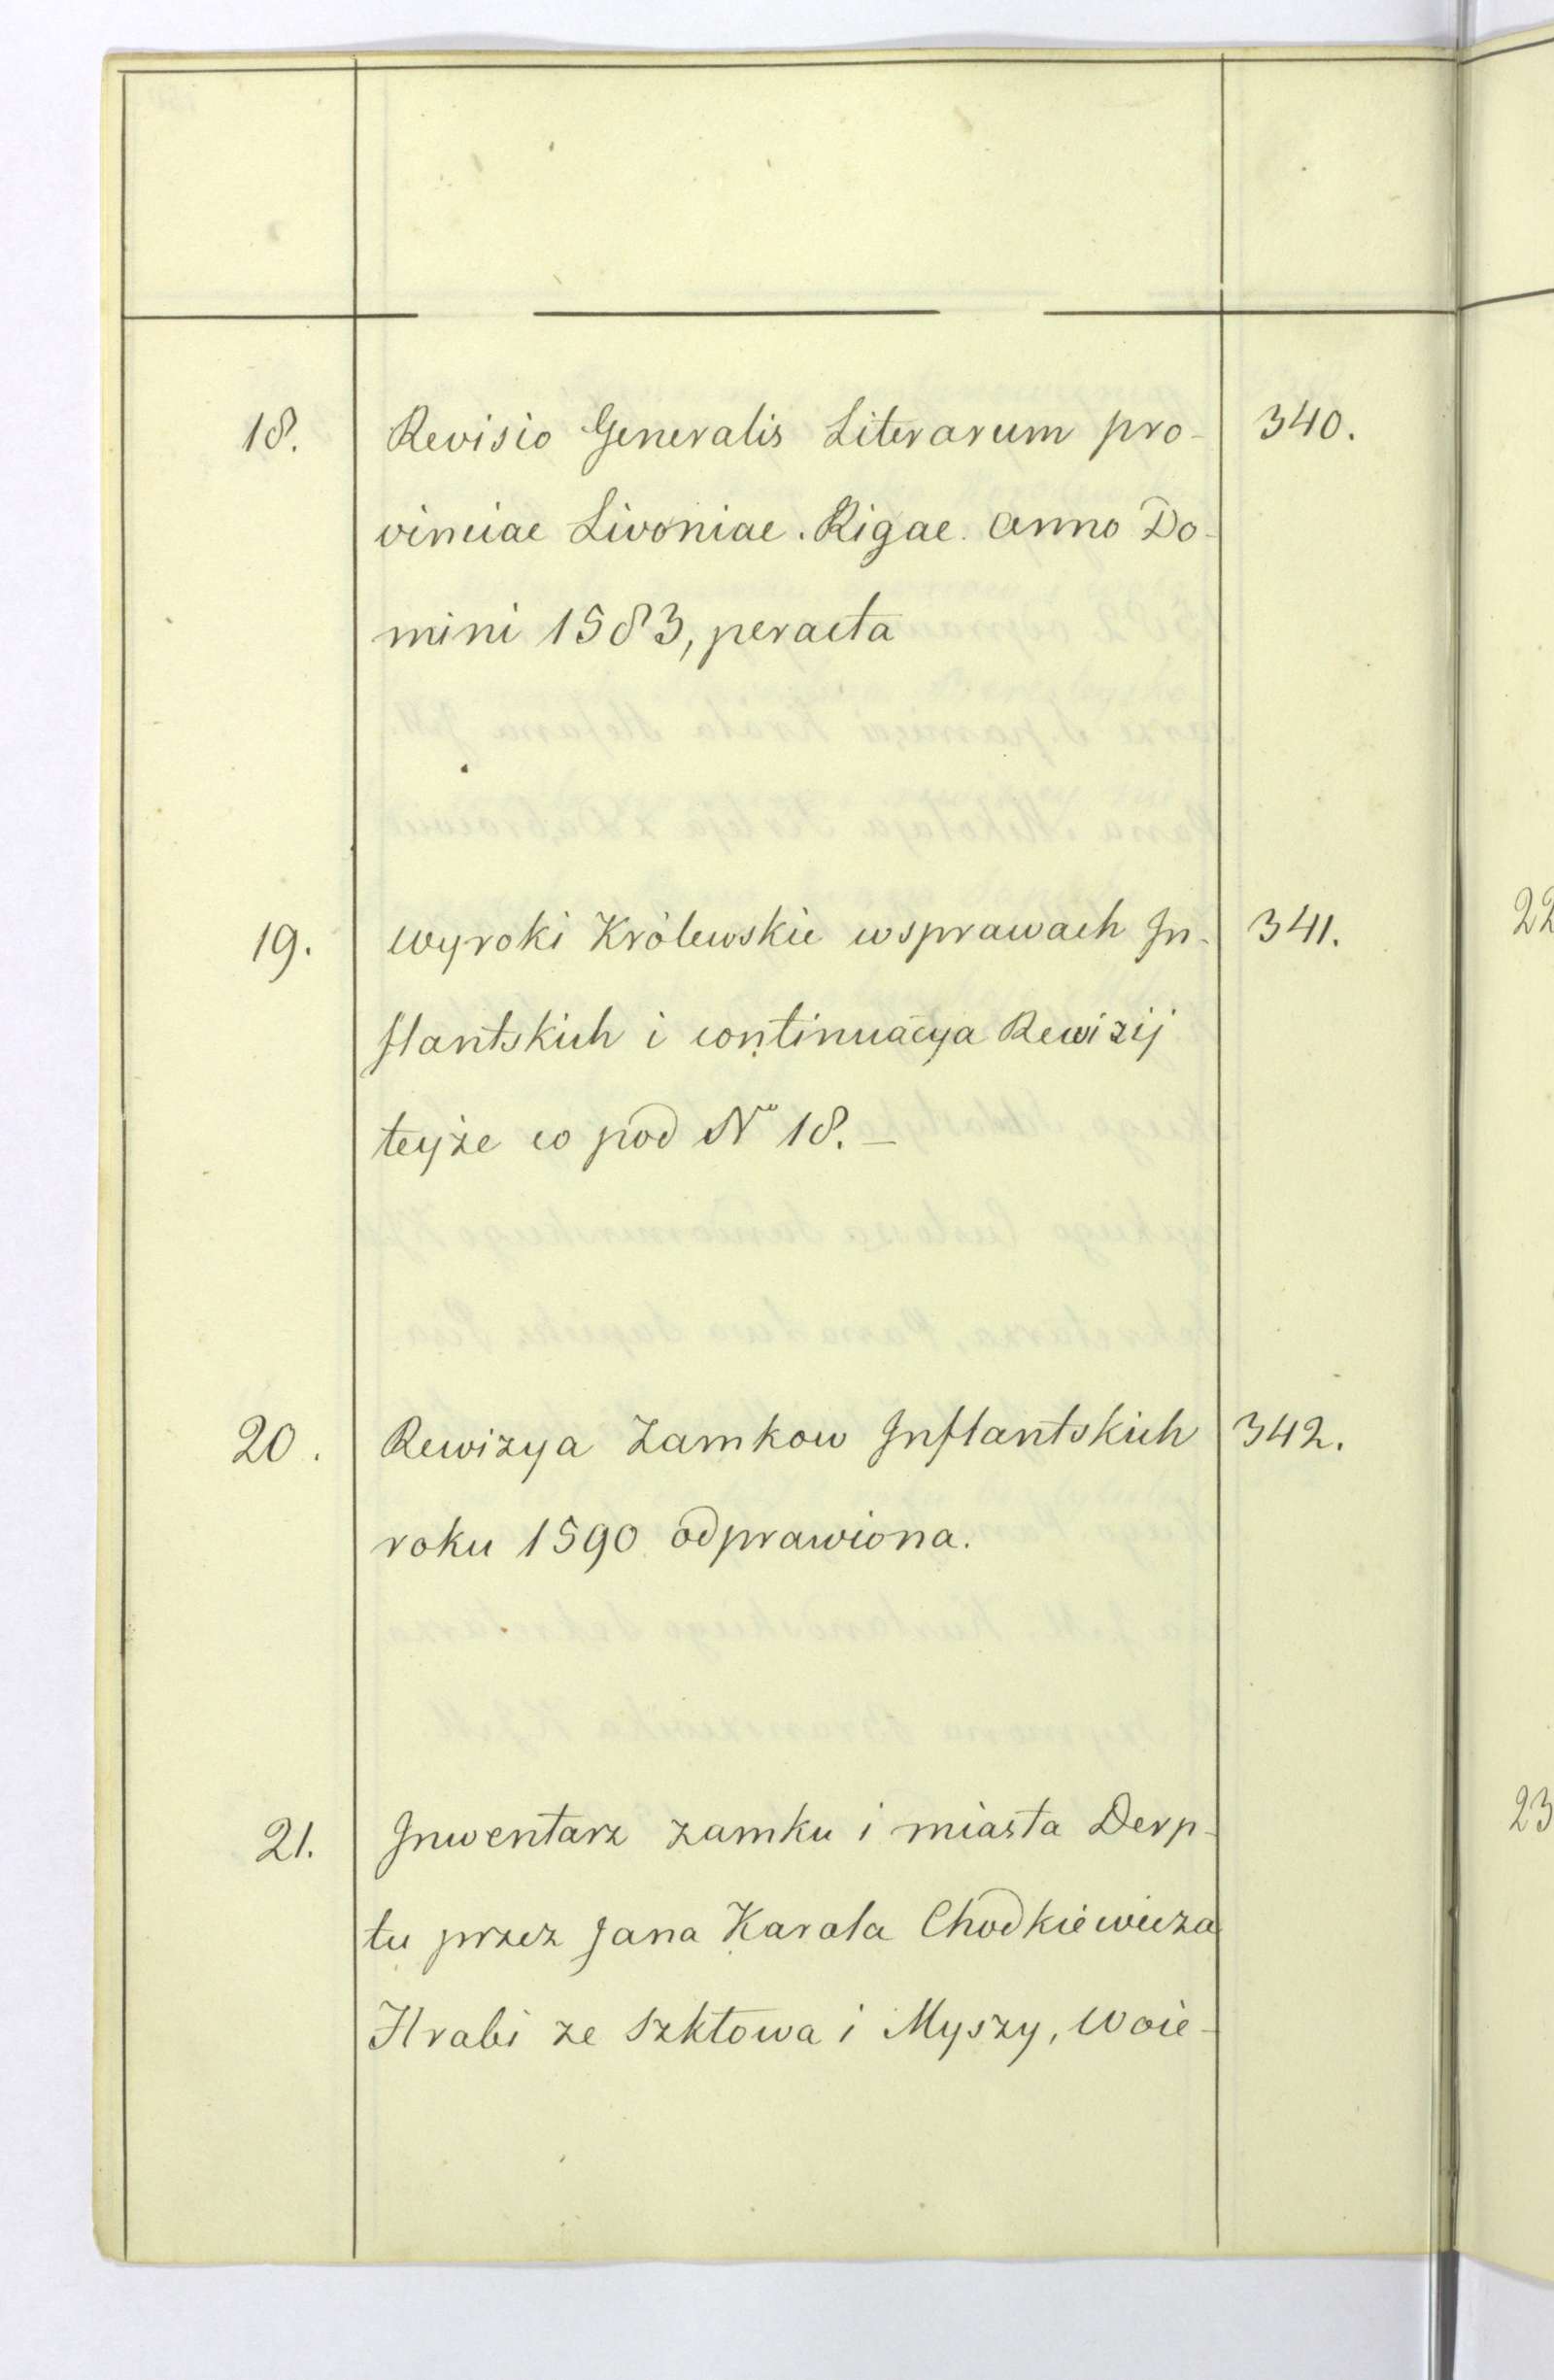 18. Revisio Generalis Literarum pro- 340.
vinciae Livoniae. Rigae. Anno Do-
mini 1583, peracta
19. Wyroki Królewskie w sprawach In- 341.
flantskich i continuacya Rewizij
teyże co pod No 18. —
20. Rewizya Zamkow Inflantskich 342.
roku 1590 odprawiona.
21. Inwentarz zamku i miasta Derp-
tu przez Jana Karola Chodkiewicza
Hrabi ze Szkłowa i Myszy, Woie-
22
23